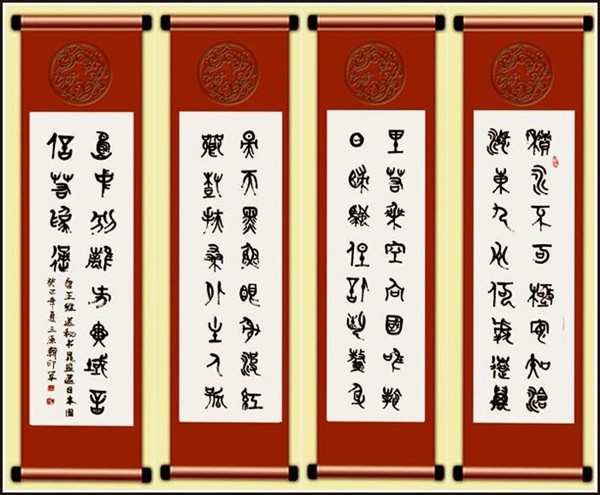 積水不可極安知滄
海東九州何處遠萬
里若乘空向國唯看
日歸帆但信風鰲身
映天黑魚眼射波紅
鄉樹扶桑外主人孤
島中別離方異域音
信若為通
唐王維送秘书晁監還日本國
癸巳年夏三原韓印軍